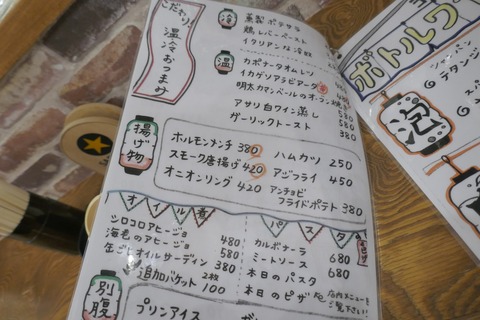 こだわり!
温冷おつまみ
冷
燻製ポテサラ
鶏レバーペースト
イタリアンな冷奴
温
カポナータオムレツ
イカゲソアラビアータ
明太カマンベールのオーブン焼き 580
アサリ白ワイン蒸し 580
ガーリックトースト 380
揚げ物
ホルモンメンチ 380
スモーク唐揚げ 420
オニオンリング 420
ハムカツ 250
アジフライ 450
アンチョビ
フライドポテト 380
オイル煮
シロコロアヒージョ 480
海老のアヒージョ 580
缶ごとオイルサーディン 380
追加バケット 2枚 100
パスタ
カルボナーラ 680
ミートソース 680
本日のパスタ
本日のピザ
店内メニューを
ご覧下さい!
別腹
プリンアイス
ボトルワ
泡